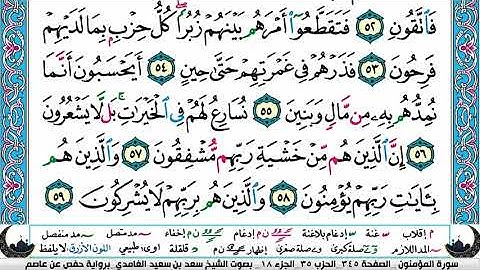 فَاتَّقُونِ ٥٢ فَتَقَطَّعُوٓا۟ أَمْرَهُم بَيْنَهُمْ زُبُرًا ۖ كُلُّ حِزْبٍۭ بِمَا لَدَيْهِمْ
فَرِحُونَ ٥٣ فَذَرْهُمْ فِى غَمْرَتِهِمْ حَتَّىٰ حِينٍ ٥٤ أَيَحْسَبُونَ أَنَّمَا
نُمِدُّهُم بِهِۦ مِن مَّالٍ وَبَنِينَ ٥٥ نُسَارِعُ لَهُمْ فِى ٱلْخَيْرَٰتِ ۚ بَل لَّا يَشْعُرُونَ
٥٦ إِنَّ ٱلَّذِينَ هُم مِّنْ خَشْيَةِ رَبِّهِم مُّشْفِقُونَ ٥٧ وَٱلَّذِينَ هُم
بِـَٔايَٰتِ رَبِّهِمْ يُؤْمِنُونَ ٥٨ وَٱلَّذِينَ هُم بِرَبِّهِمْ لَا يُشْرِكُونَ ٥٩
م إقلاب غنة إدغام بلاغنة إظهار إدغام إخفاء مد متصل مد منفصل
مد اللازم صلة كبرى صلة صغرى قلقلة أوى طبيعي اللون الأزرق لا يلفظ
سورة المؤمنون . الصفحة ٣٤٥ الحزب ٣٥ الجزء ١٨ . بصوت الشيخ سعد بن سعيد الغامدي . برواية حفص عن عاصم